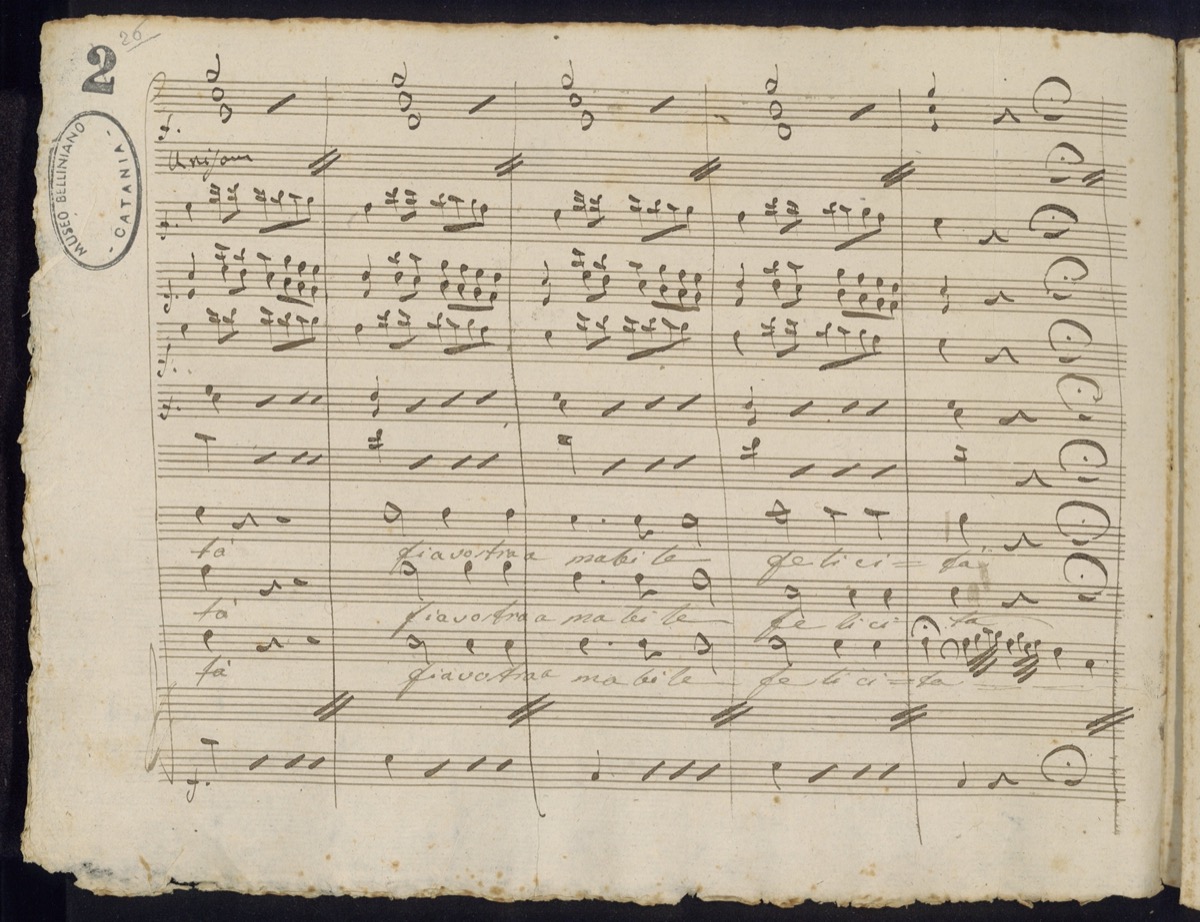 26
2
MUSEO BELLINIANO
- CATANIA -
f.
Unisoni
f.
f.
f.
f.
tà fia vostra a mabile felici = tà
tà fia vostra a mabile felici ta
tà fia vostra a mabile felici = ta
f.